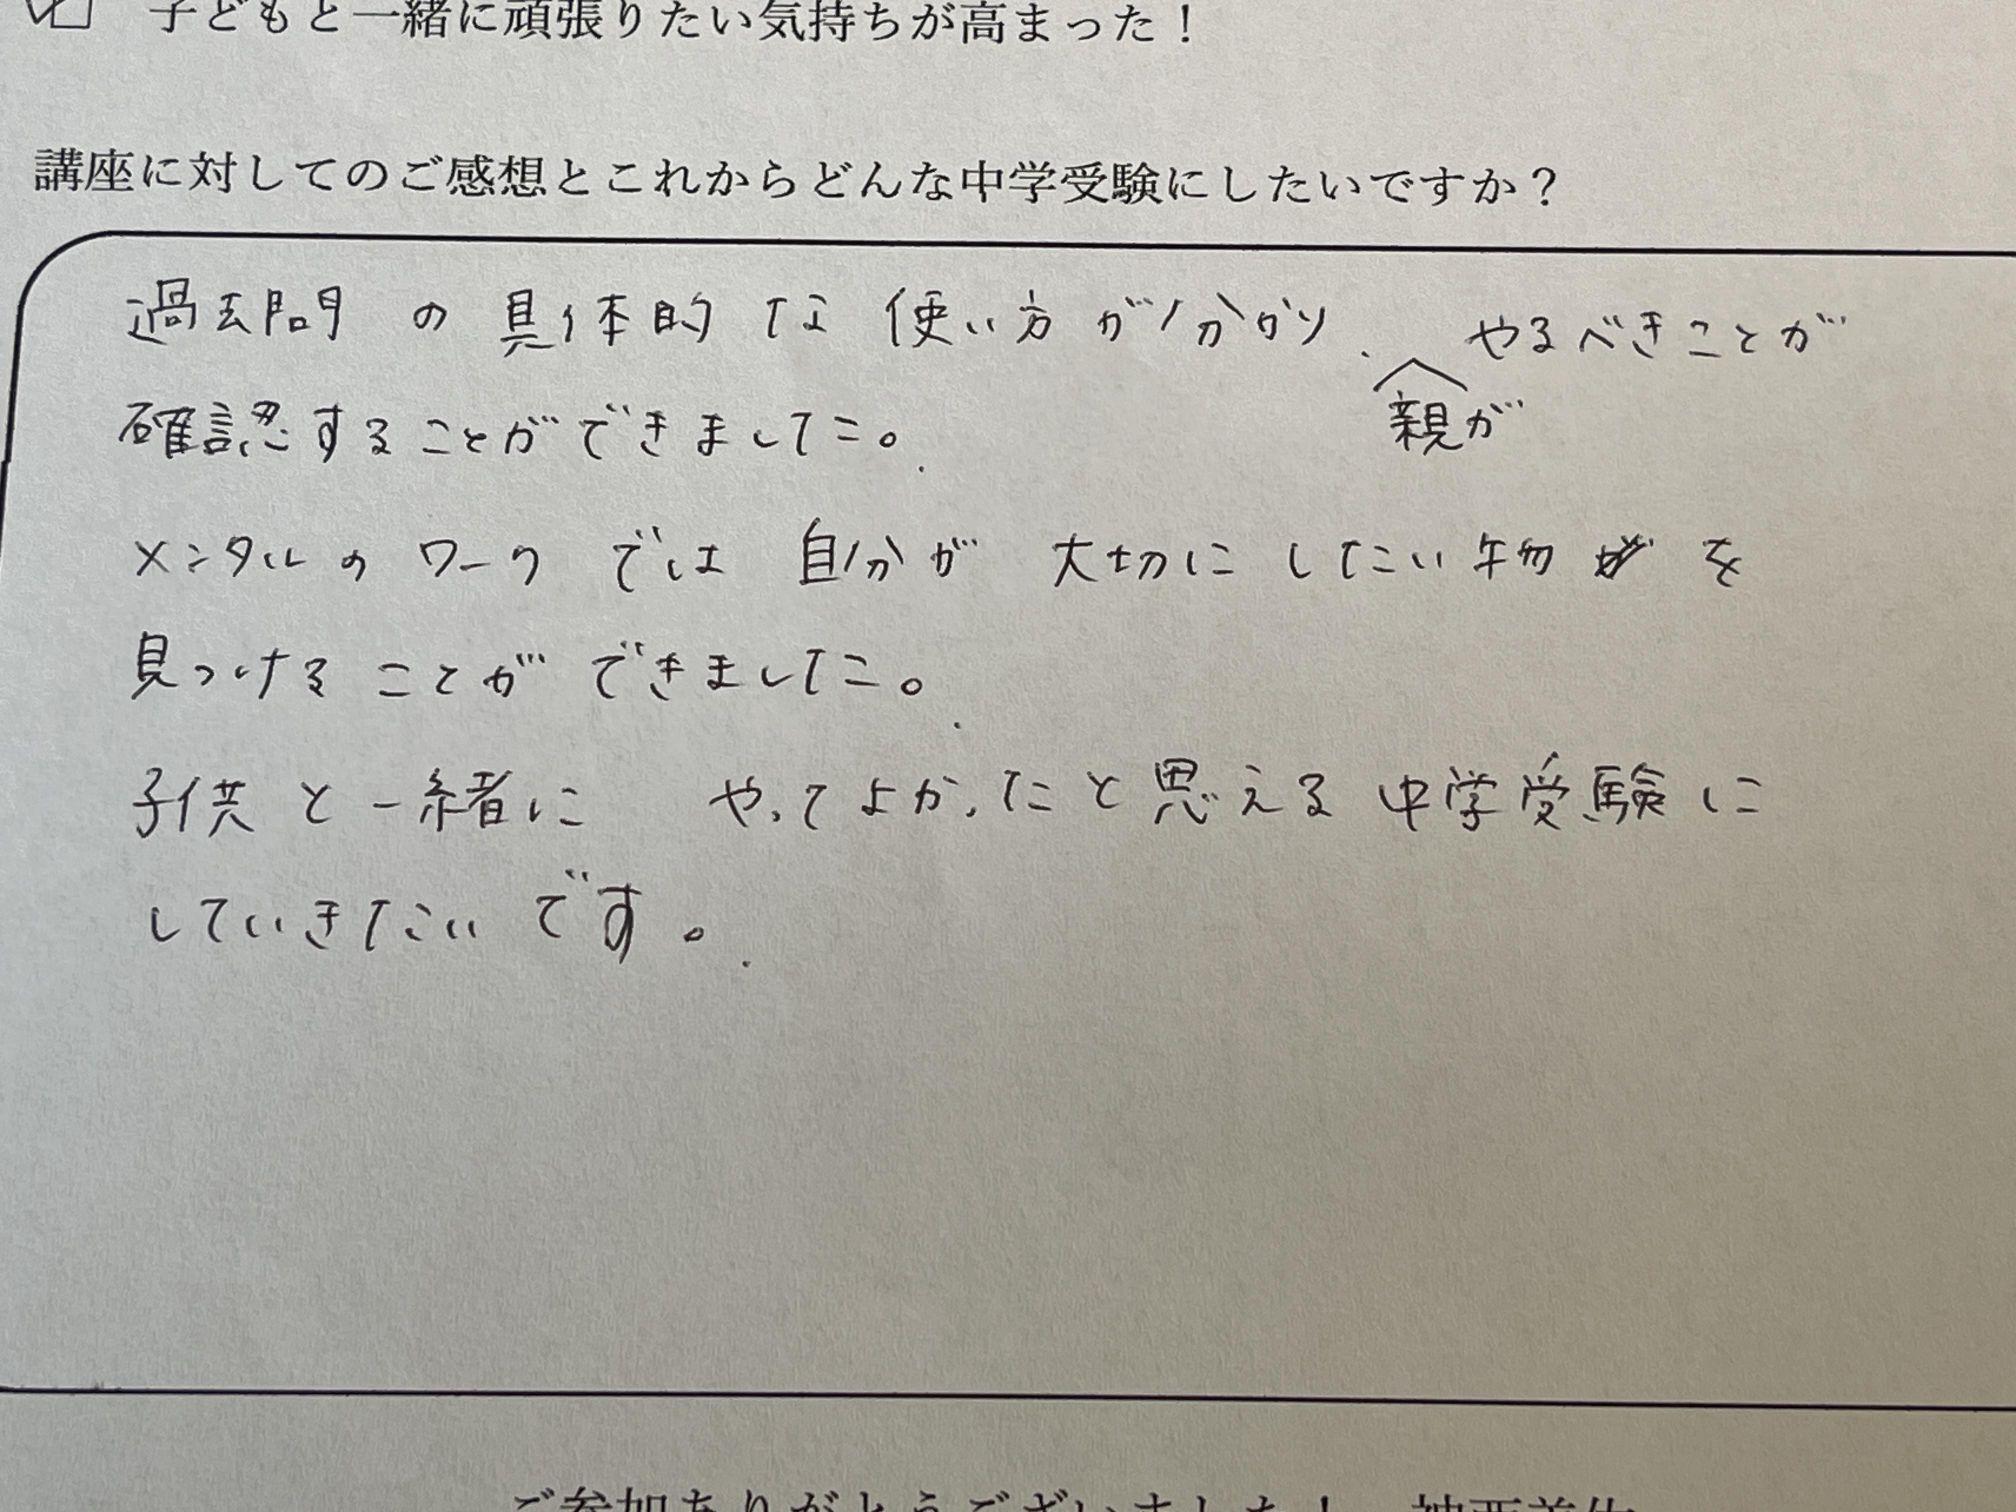 子どもと一緒に頑張りたい気持ちが高まった！
講座に対してのご感想とこれからどんな中学受験にしたいですか？
過去問の具体的な使い方が分かり、親がやるべきことが
確認することができました。
メンタルのワークでは自分が大切にしたい物を
見つけることができました。
子供と一緒にやってよかったと思える中学受験に
していきたいです。
ご参加ありがとうございました！